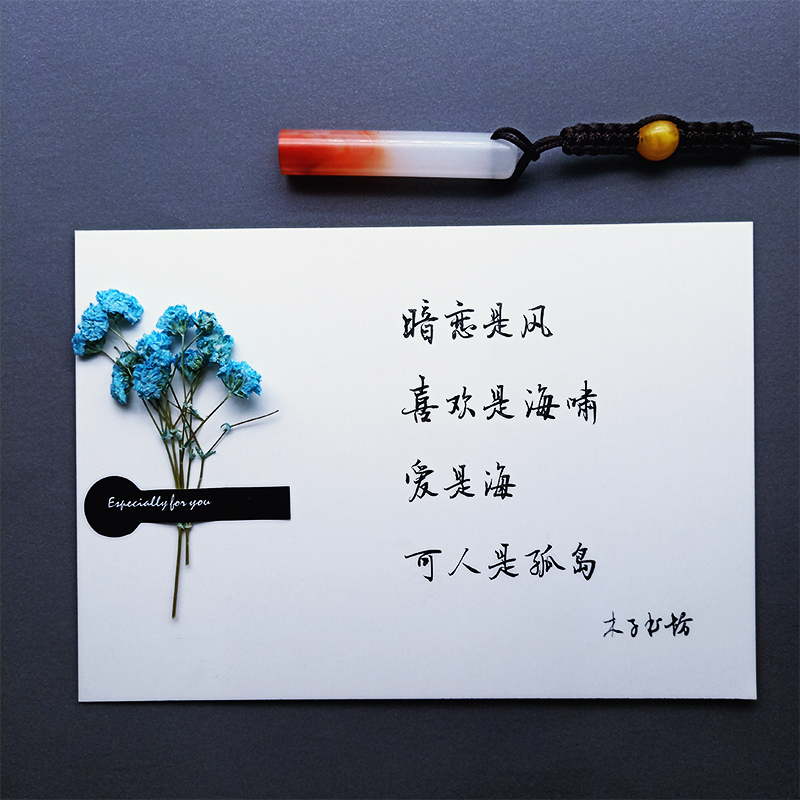 暗恋是风
喜欢是海啸
爱是海
可人是孤岛
木子书坊
Especially for you